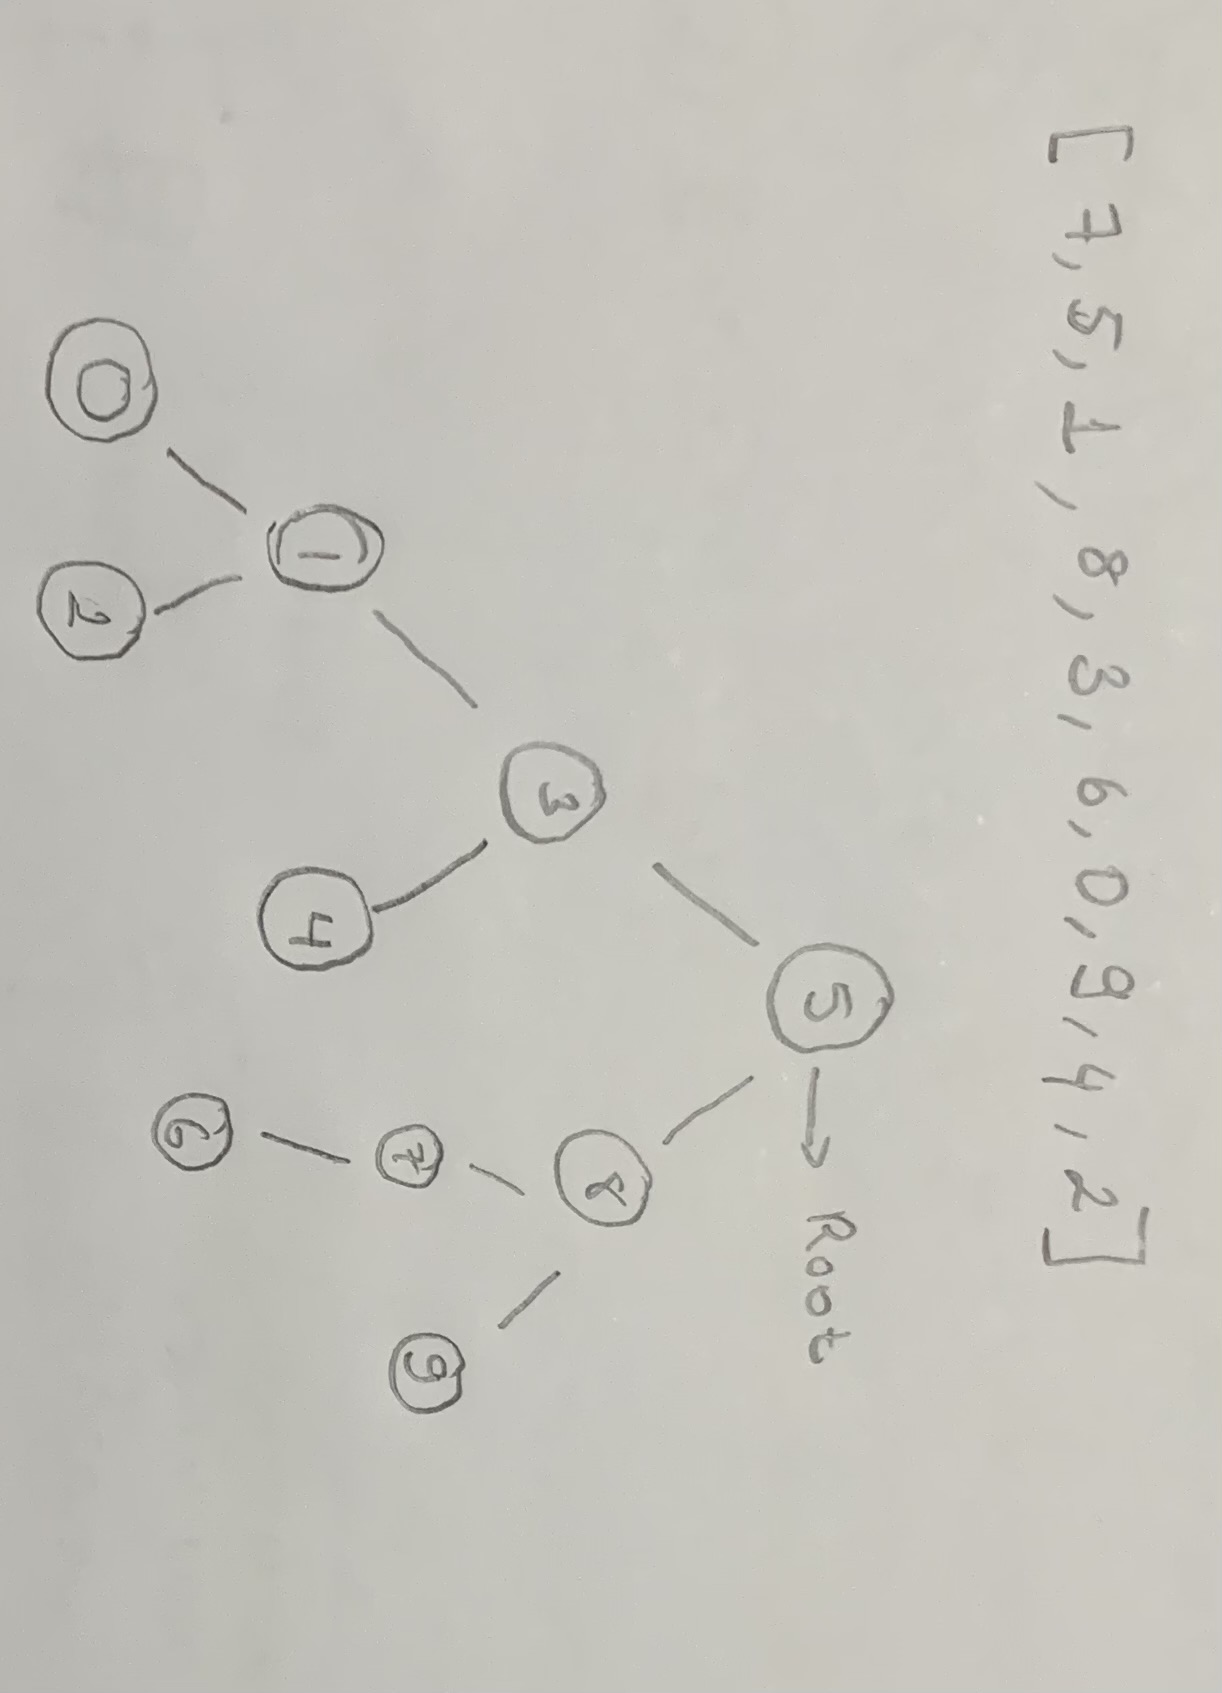 [7,5,1,8,3,6,0,9,4,2]
5 → Root
3 8
1 4 7 9
0 2 6